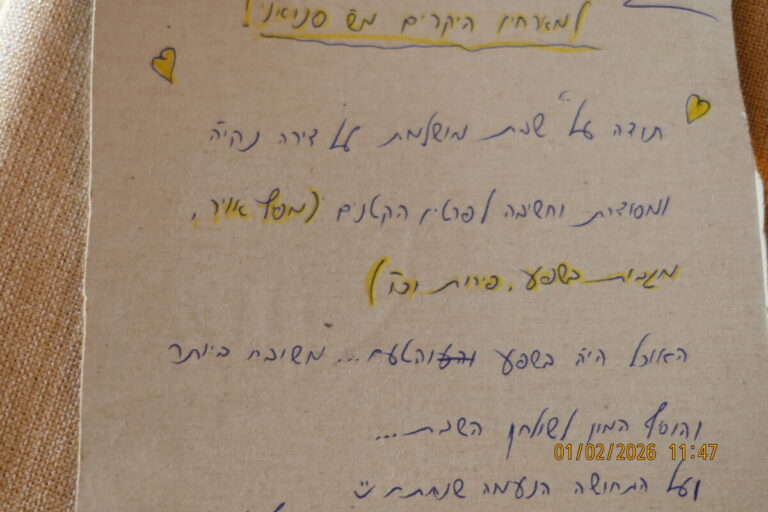 למארחין היקרים מש' סנואני!
תודה על שבת מושלמת על דירה נקיה
ומסודרת וחשיבה לפרטין הקטנים (מפיץ אוויר,
מגבות בשפע, פירות וכו')
האוכל היה בשפע והטעם... משובח ביותר
והוסיף המון לשולחן השבת...
ועל התחושה הנעימה שנתתם
01/02/2026 11:47